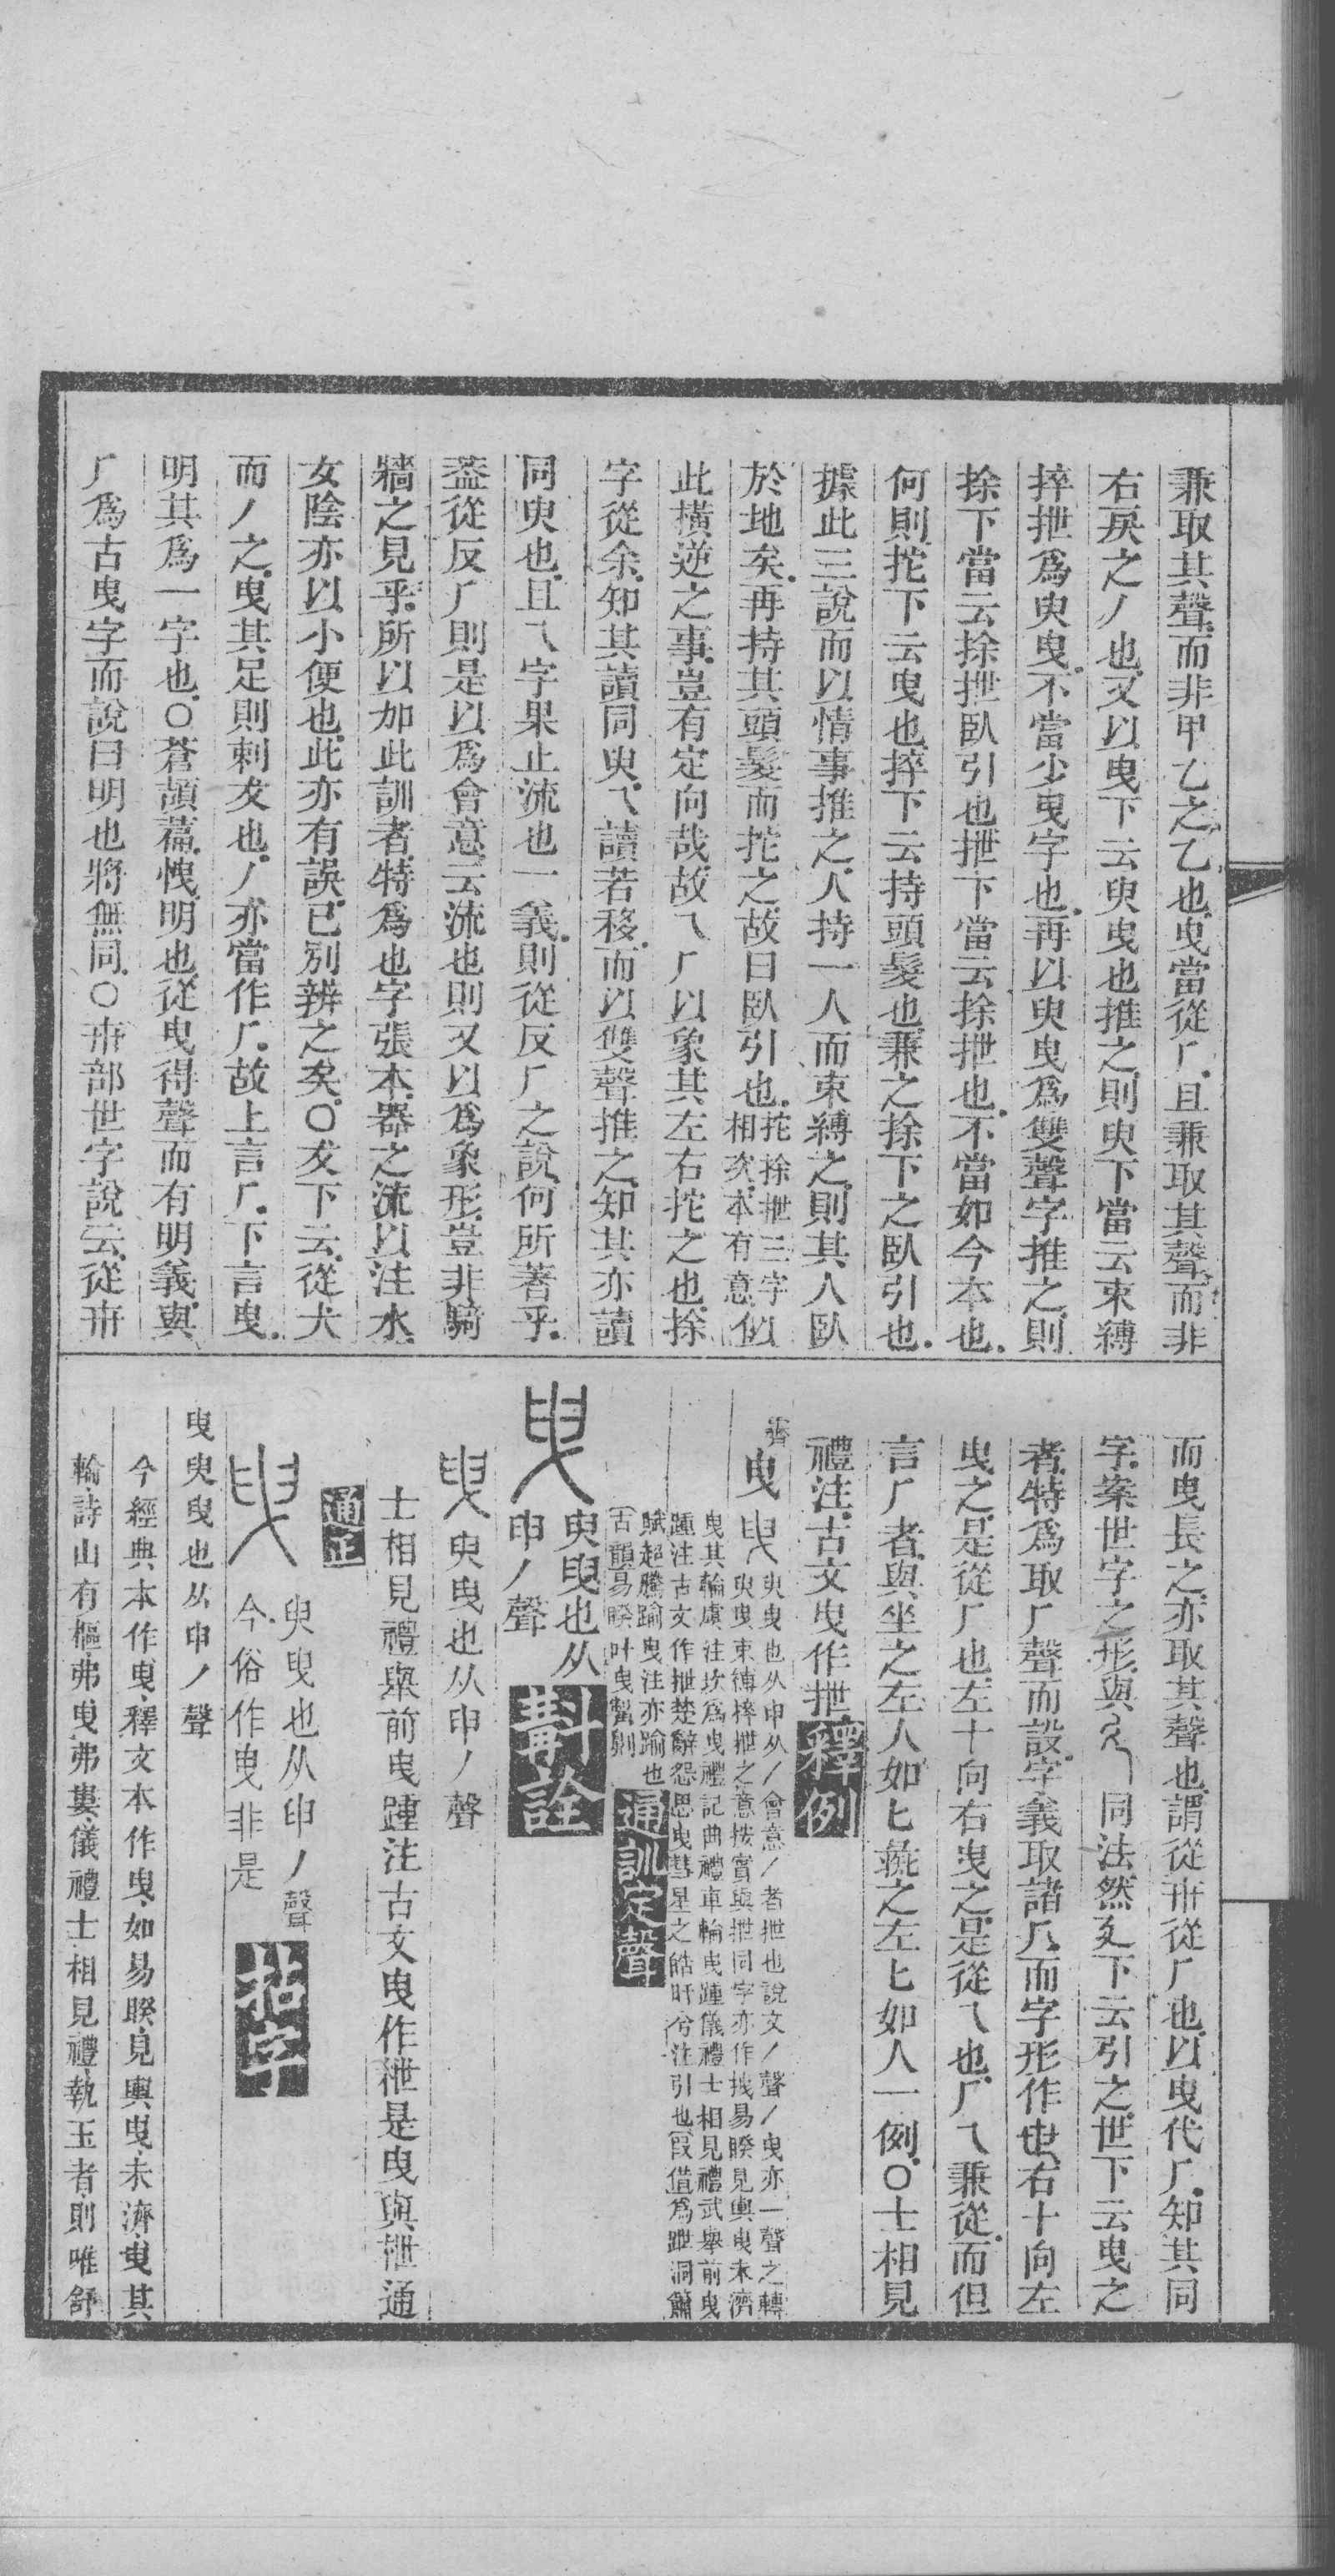 兼取其聲而非甲乙之乙也曳當從厂且兼取其聲而非
右戾之丿也又以曳下云臾曳也推之則臾下當云束縛
捽抴爲臾曳不當少曳字也再以臾曳爲雙聲字推之則
捈下當云捈抴臥引也抴下當云捈抴也不當如今本也
何則拕下云曳也捽下云持頭髮也兼之捈下之臥引也
據此三說而以情事推之人持一人而束縛之則其人臥
於地矣再持其頭髮而拕之故曰臥引也拕捈抴三字相次本有意似
此橫逆之事豈有定向哉故乁厂以象其左右拕之也捈
字從余知其讀同臾乁讀若移而以雙聲推之知其亦讀
同臾也且乁字果止流也一義則從反厂之說何所著乎
葢從反厂則是以爲會意云流也則又以爲象形豈非騎
牆之見乎所以加此訓者特爲也字張本器之流以注水
女陰亦以小便也此亦有誤已別辨之矣○犮下云從犬
而丿之曳其足則剌犮也丿亦當作厂故上言厂下言曳
明其爲一字也○蒼頡篇㑥明也從曳得聲而有明義與
厂爲古曳字而說曰明也將無同○卅部世字說云從卅
而曳長之亦取其聲也謂從卅從厂也以曳代厂知其同
字案世字之形與乁同法然廴下云引之世下云曳之
者特爲取厂聲而設字義取諸厂而字形作右十向左
曳之是從厂也左十向右曳之是從乁也厂乁兼從而但
言厂者與坐之左人如匕㲋之左匕如人一例○士相見
禮注古文曳作抴 釋例
曳 臾曳也从申从丿會意丿者抴也說文丿聲丿曳亦一聲之轉
臾曳束縛捽抴之意按實與抴同字亦作拽易睽見輿曳未濟
曳其輪虞注坎爲曳禮記曲禮車輪曳踵儀禮士相見禮武舉前曳
踵注古文作抴楚辭怨思曳彗星之皓旰兮注引也假借爲跇洞簫
賦超騰踰曳注亦踰也
古韻易睽叶曳掣劓 通訓定聲
曳 臾曳也从申丿聲 斠詮
曳 臾曳也从申丿聲
士相見禮舉前曳踵注古文曳作泄是曳與抴通
通正
曳 臾曳也从申丿聲今俗作曳非是 拈字
曳臾曳也从申丿聲
今經典本作曳釋文本作曳如易睽見輿曳未濟曳其
輪詩山有樞弗曳弗婁儀禮士相見禮執玉者則唯舒